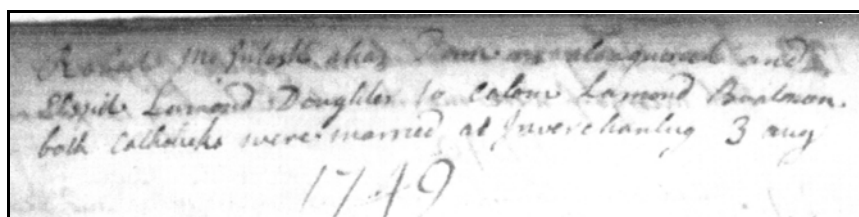 Robert McIntosh alias Down and
Elspit Lamond Doughter to Calom Lamond Boatman.
both Catholicks were married at Inverchanlug 3 aug
1749